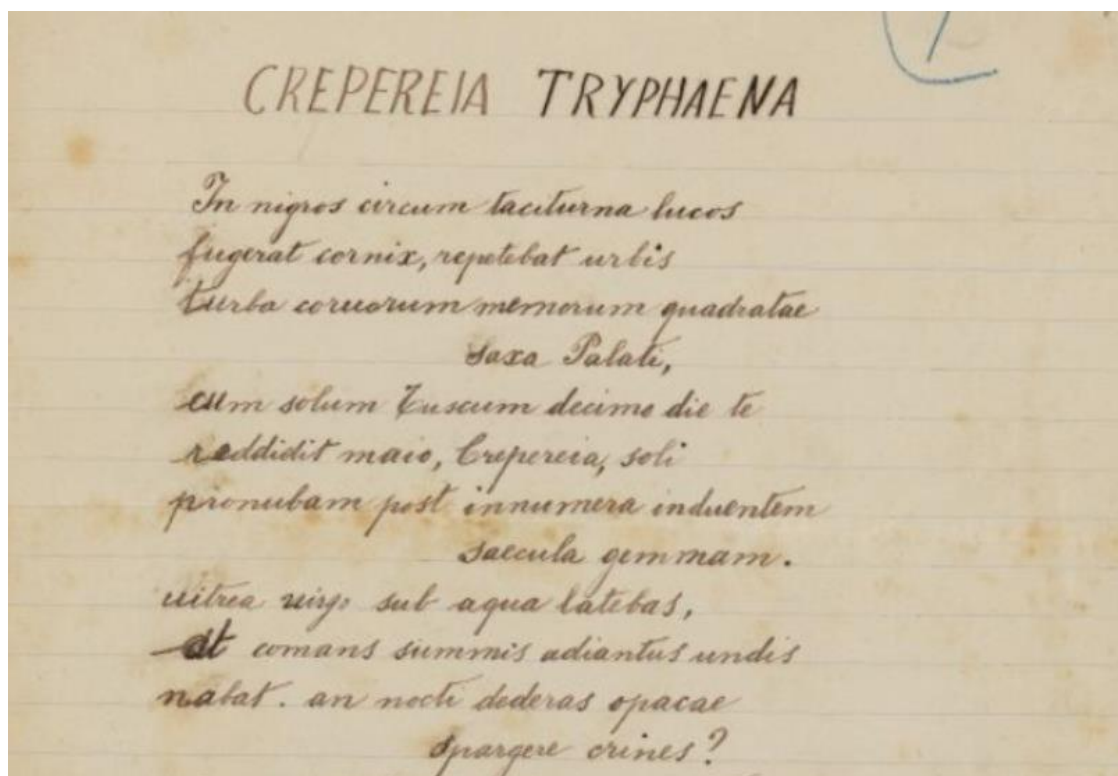 CREPEREIA TRYPHAENA
In nigros circum taciturna lucos
fugerat cornix, repetebat urbis
turba coruorum memorum quadratae
saxa Palati,
cum solum Tuscum decimo die te
reddidit maio, Crepereia, soli
pronubam post innumera induentem
saecula gemmam.
uitrea uirgo sub aqua latebas,
at comans summis adiantus undis
nabat. an nocti dederas opacae
spargere crines?